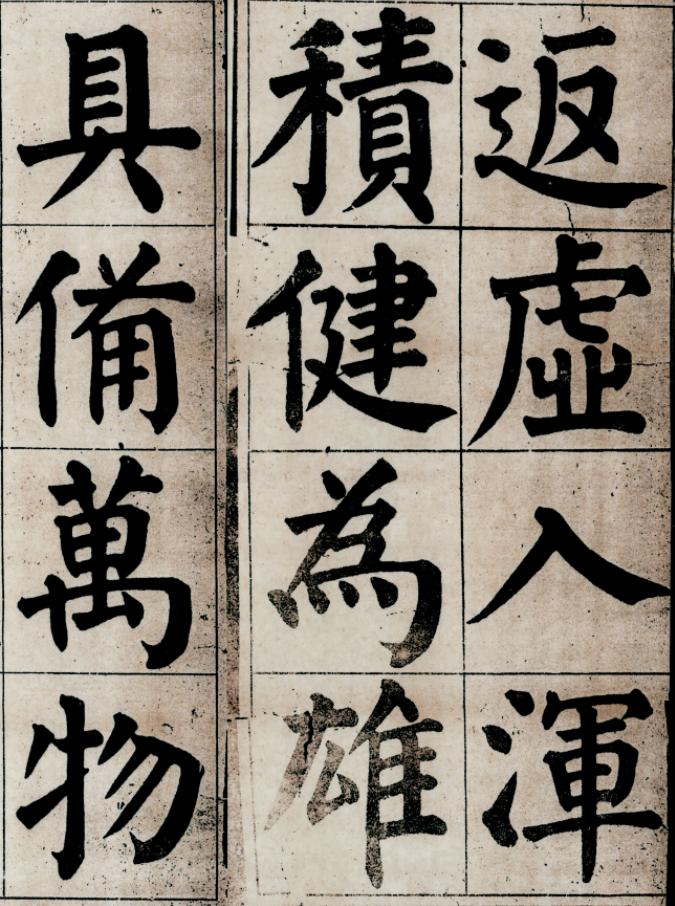 返虛入渾
積健為雄
具備萬物